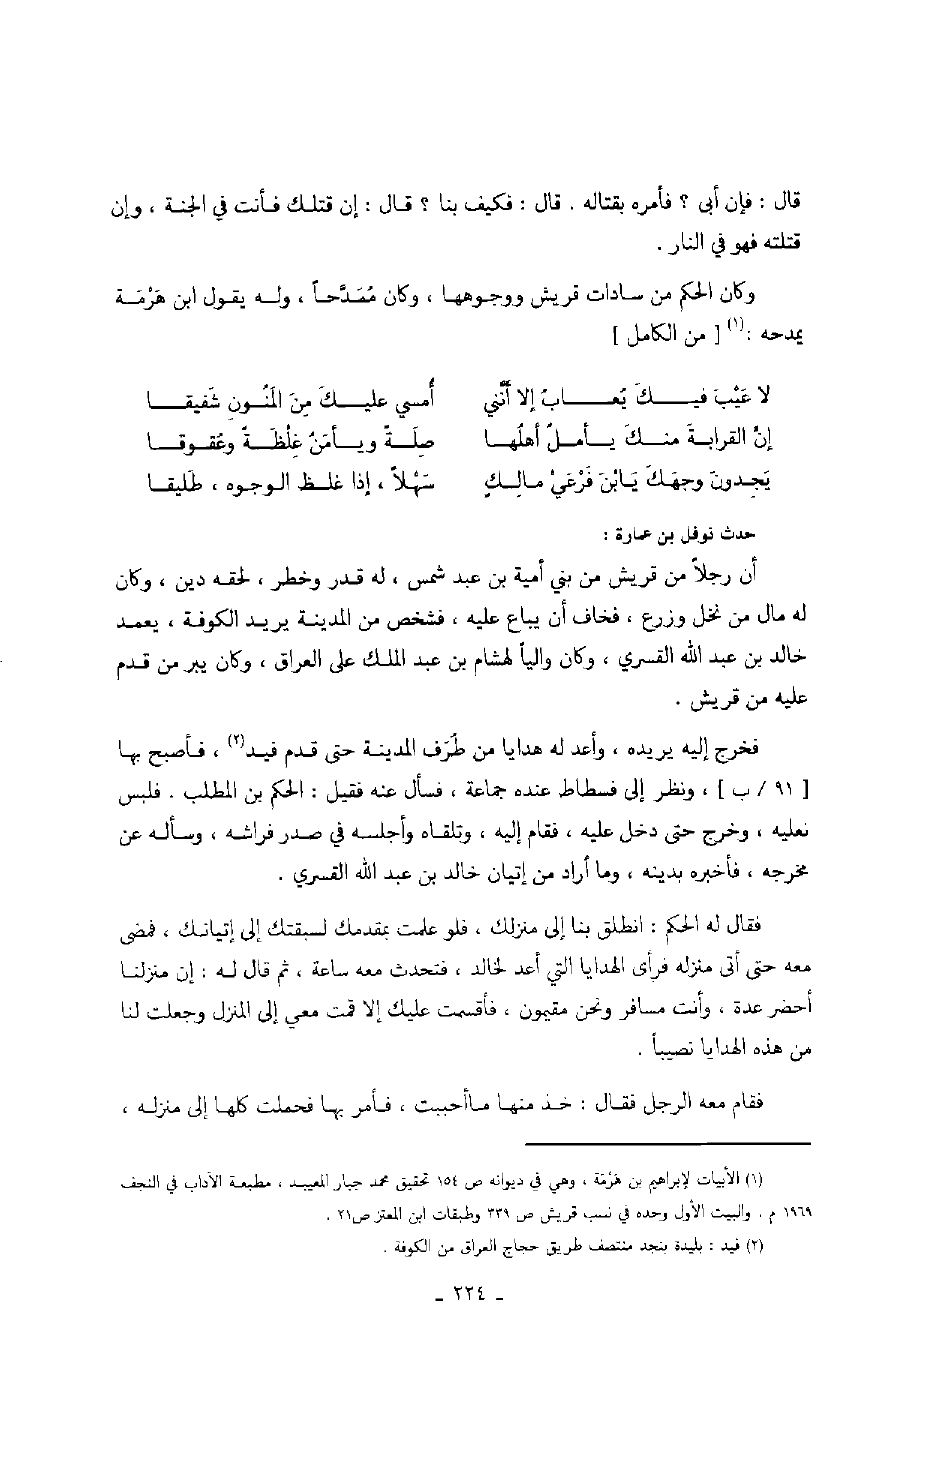 قال : فإن أبى ؟ فأمره بقتاله . قال : فكيف بنا ؟ قال : إن قتلك فأنت في الجنة ، وإن
قتلته فهو في النار .
وكان الحكم من سادات قريش ووجوهها ، وكان مُمَدَّحاً ، وله يقول ابن هَرْمَة
يمدحه :(١) [ من الكامل ]
لا عَيْبَ فيكَ يُعابُ إلا أنَّني أُمسي عليكَ مِنَ المَنُونِ شَفيقا
إنَّ القرابةَ منكَ يأملُ أهلُها صِلَةً ويأمَنُ غِلْظَةً وعُقوقا
يَجِدونَ وجهَكَ يَابْنَ فَرْعَيْ مالِكٍ سَهْلاً ، إذا غلظ الوجوه ، طَليقا
حدث نوفل بن عمارة :
أن رجلاً من قريش من بني أمية بن عبد شمس ، له قدر وخطر ، لحقه دين ، وكان
له مال من نخل وزرع ، فخاف أن يباع عليه ، فشخص من المدينة يريد الكوفة ، يعمد
خالد بن عبد الله القسري ، وكان والياً لهشام بن عبد الملك على العراق ، وكان يبر من قدم
عليه من قريش .
فخرج إليه يريده ، وأعد له هدايا من طُرَف المدينة حتى قدم فيد(٢) ، فأصبح بها
[ ٩١ / ب ] ، ونظر إلى فسطاط عنده جماعة ، فسأل عنه فقيل : الحكم بن المطلب . فلبس
نعليه ، وخرج حتى دخل عليه ، فقام إليه ، وتلقاه وأجلسه في صدر فراشه ، وسأله عن
مخرجه ، فأخبره بدينه ، وما أراد من إتيان خالد بن عبد الله القسري .
فقال له الحكم : انطلق بنا إلى منزلك ، فلو علمت بمقدمك لسبقتك إلى إتيانك ، فمضى
معه حتى أتى منزله فرأى الهدايا التي أعد لخالد ، فتحدث معه ساعة ، ثم قال له : إن منزلنا
أحضر عدة ، وأنت مسافر ونحن مقيمون ، فأقسمت عليك إلا قمت معي إلى المنزل وجعلت لنا
من هذه الهدايا نصيباً .
فقام معه الرجل فقال : خذ منها ماأحببت ، فأمر بها فحملت كلها إلى منزله ،
(١) الأبيات لإبراهيم بن هَرْمَة ، وهي في ديوانه ص ١٥٤ تحقيق محمد جبار المعيبد ، مطبعة الآداب في النجف
١٩٦٩ م . والبيت الأول وحده في نسب قريش ص ٣٣٩ وطبقات ابن المعتز ص٢١ .
(٢) فيد : بليدة بنجد منتصف طريق حجاج العراق من الكوفة .
ـ ٢٢٤ ـ